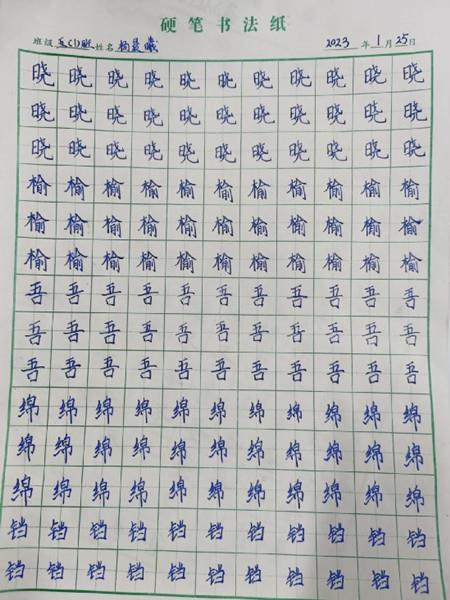 硬笔书法纸
班级 五(1)班 姓名 杨晨曦 2023 年 1 月 25 日
晓晓晓晓晓晓晓晓晓晓晓
晓晓晓晓晓晓晓晓晓晓晓
晓晓晓晓晓晓晓晓晓晓晓
榆榆榆榆榆榆榆榆榆榆榆
榆榆榆榆榆榆榆榆榆榆榆
榆榆榆榆榆榆榆榆榆榆榆
吾吾吾吾吾吾吾吾吾吾吾
吾吾吾吾吾吾吾吾吾吾吾
吾吾吾吾吾吾吾吾吾吾吾
绵绵绵绵绵绵绵绵绵绵绵
绵绵绵绵绵绵绵绵绵绵绵
绵绵绵绵绵绵绵绵绵绵绵
铛铛铛铛铛铛铛铛铛铛铛
铛铛铛铛铛铛铛铛铛铛铛